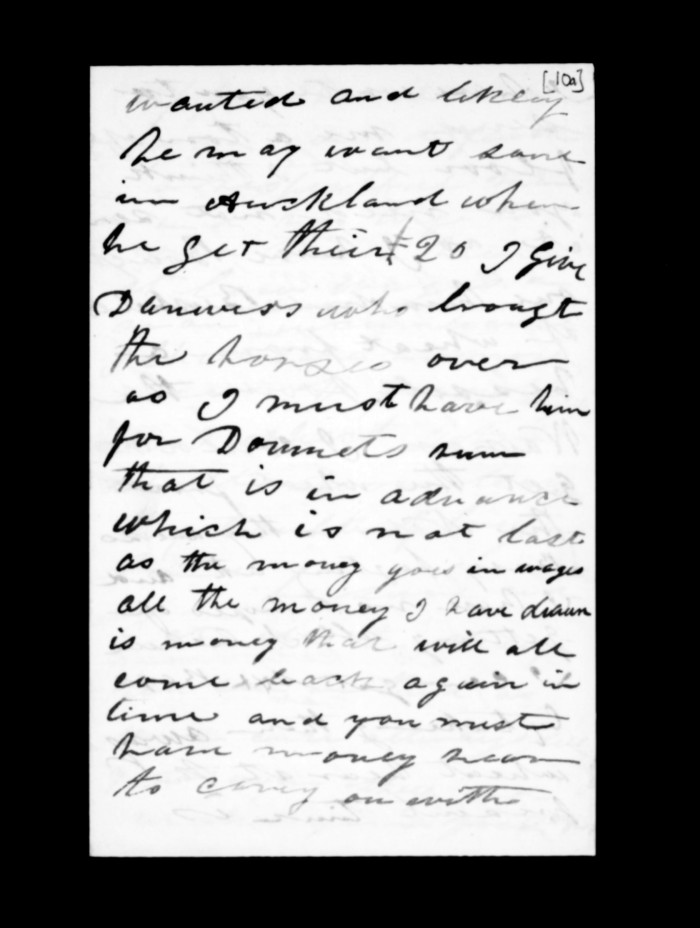 [10a]
wanted and likely
he may want some
in Auckland when
he get their £20 I give
who brought
the horses over
as I must have him
for
that is in advance
which is not last
as the money goes in wages
all the money I have drawn
is money that will all
come back again in
time and you must
have money hear
to carey on with